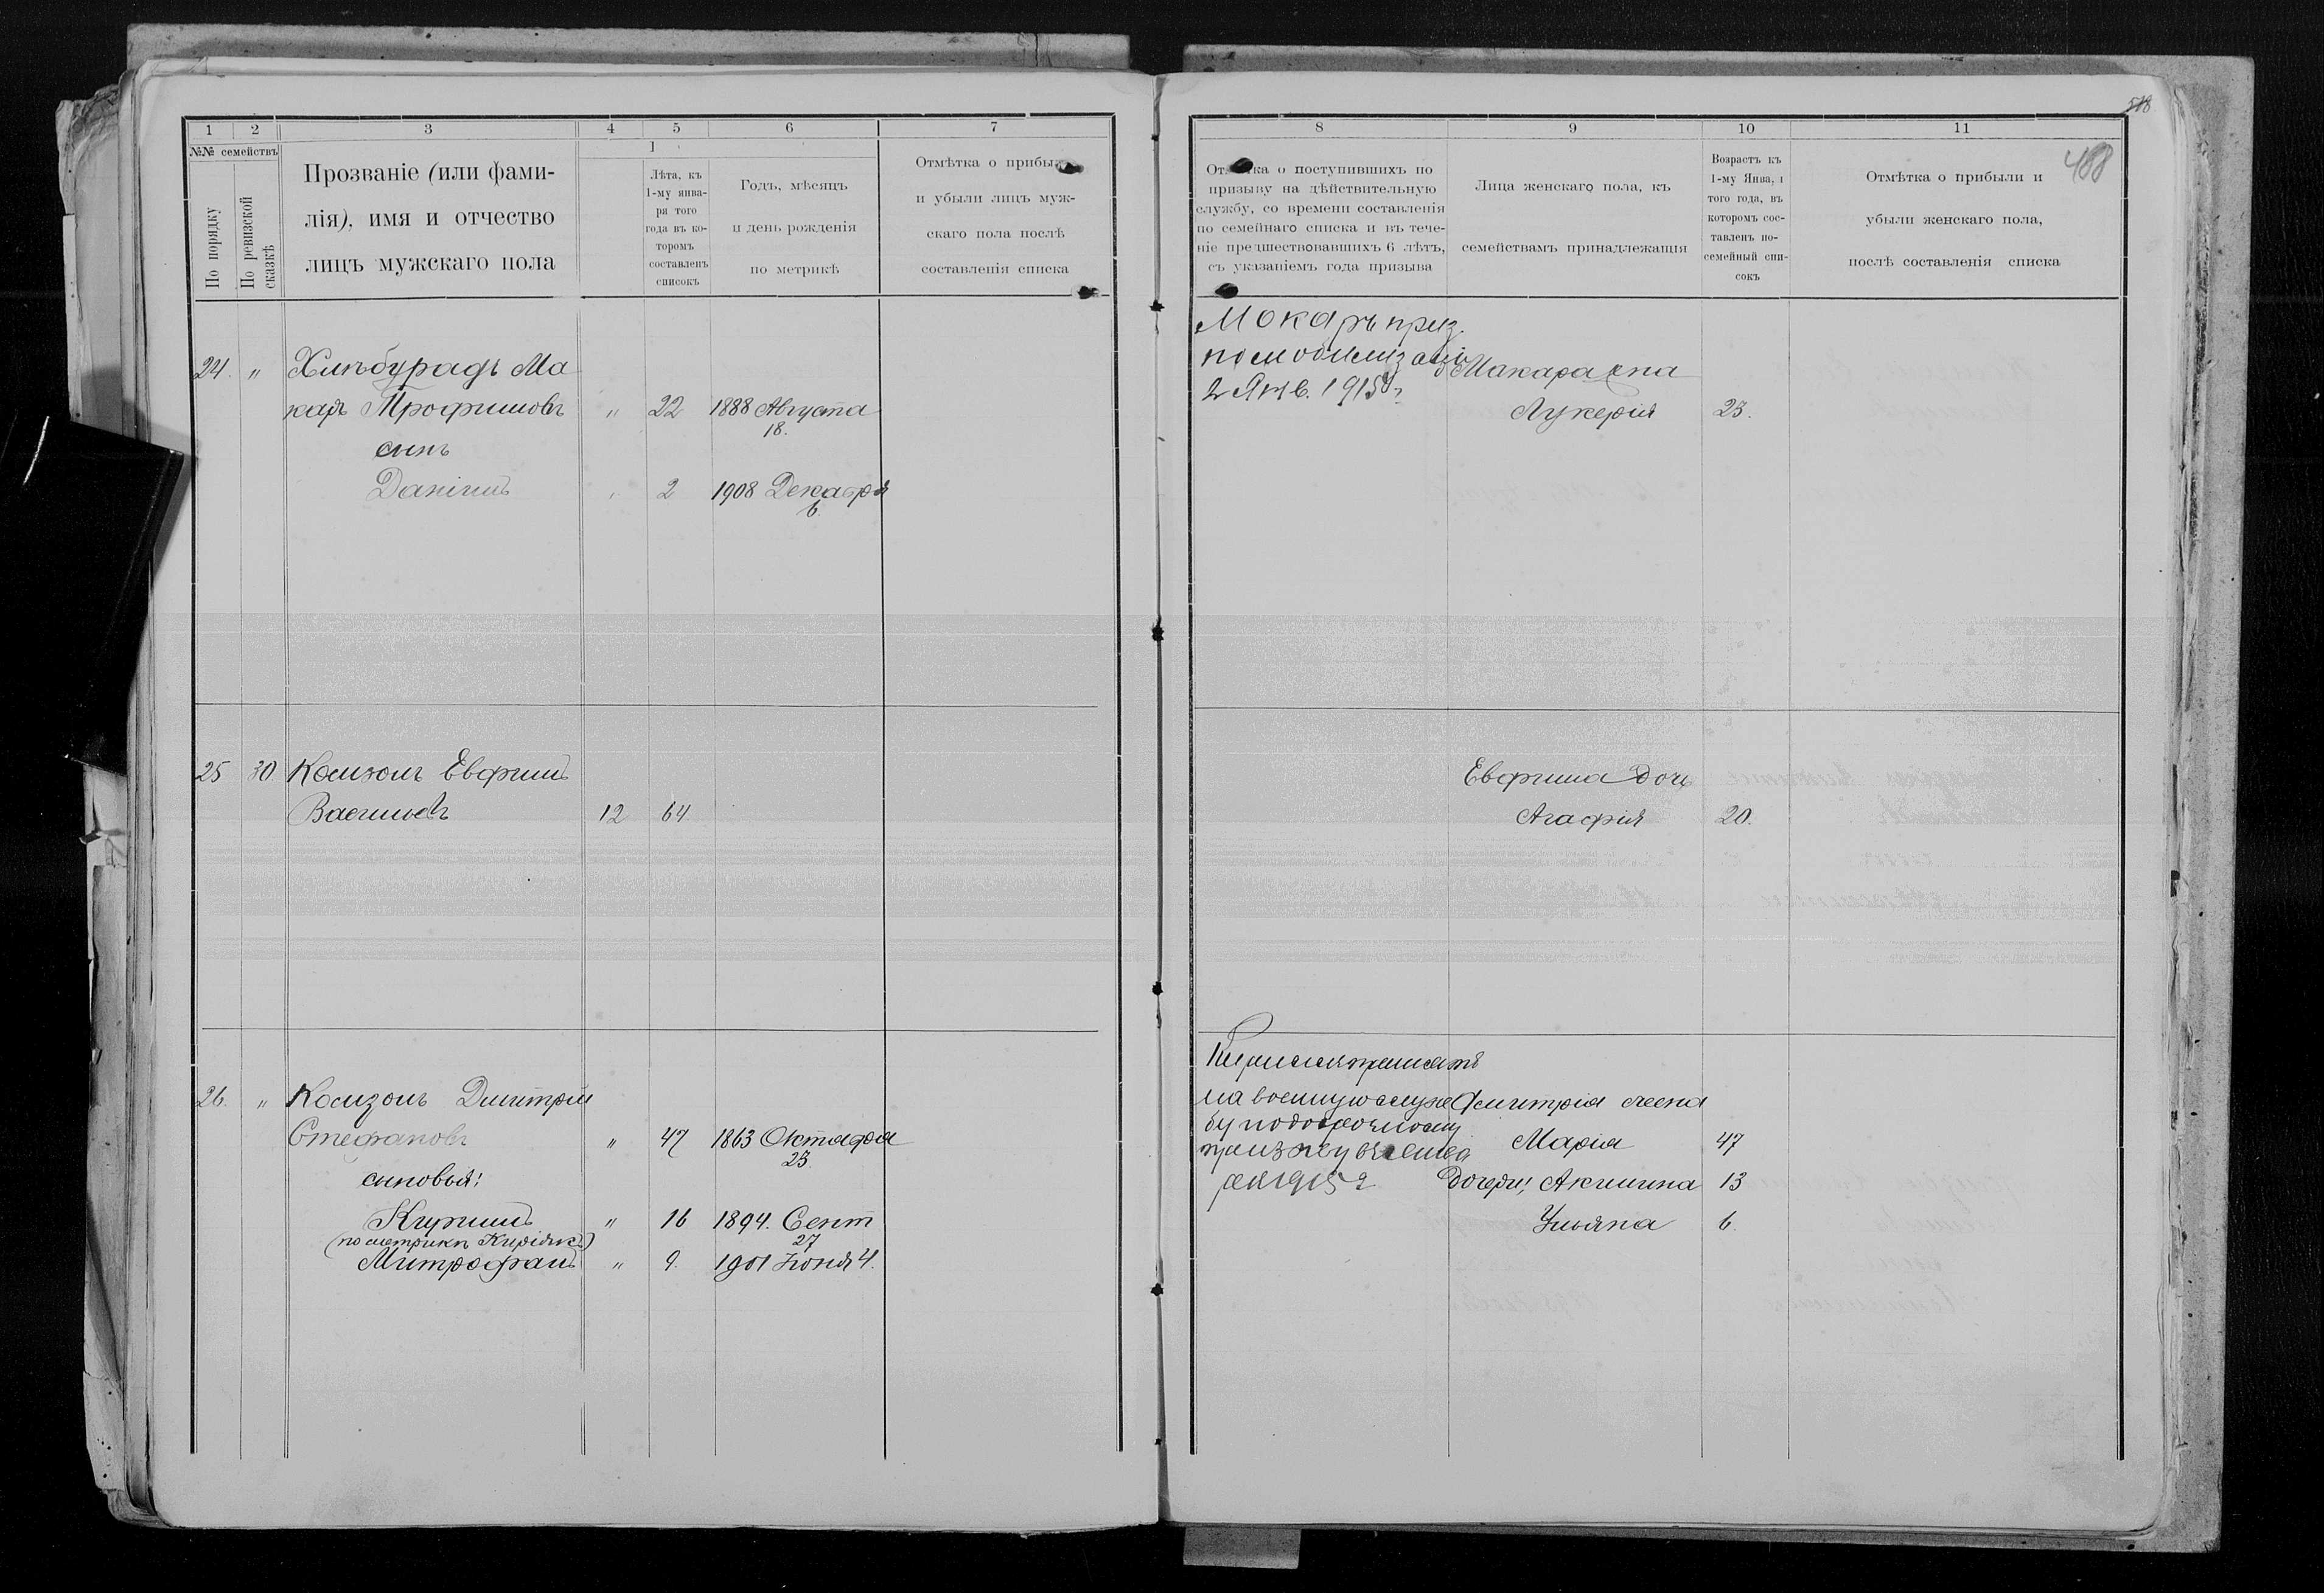 1 2 3 4 5 6 7
№№ семействъ
По порядку
По ревизской сказкѣ
Прозваніе (или фами-
лія), имя и отчество
лицъ мужскаго пола
1
Лѣта, къ
1-му янва-
ря того
года въ ко-
торомъ
составленъ
списокъ
Годъ, мѣсяцъ
и день рожденія
по метрикѣ
Отмѣтка о прибы
и убыли лицъ муж-
скаго пола послѣ
составленія списка
24. „ Хлѣбурадъ Ма
каръ Трофимовъ „ 22 1888 Августа
18.
сынъ
Даніилъ 2 1908 Декабря
6
25 30 Комзолъ Евфимъ
Васильевъ 12 64
26. „ Комзолъ Дмитрій
Стефановъ „ 47 1863 Октября
23.
сыновья:
Кирилъ „ 16 1894. Сент
27
(по метрикѣ Киріякъ)
Митрофанъ „ 9. 1901 Іюня 4.
518
8 9 10 11
488
ка о поступившихъ по
призыву на дѣйствительную
службу, со времени составленія
по семейнаго списка и въ тече-
ніе предшествовавшихъ 6 лѣтъ,
съ указаніемъ года призыва
Лица женскаго пола, къ
семействамъ принадлежащія
Возрастъ къ
1-му Янва,
того года, въ
которомъ сос-
тавленъ по-
семейный спи-
сокъ
Отмѣтка о прибыли и
убыли женскаго пола,
послѣ составленія списка
Мокаръ приз.
по мобилизаціи
2 Янв. 1915 г.
Макара жена
Лукерія 23.
Евфима дочь
Агафія 20.
Кирилъ принятъ
на военную служ
бу по досрочному
призыву
1915 г
Дмитрія жена
Марія 47
Дочери: Акилина 13
Ульяна 6.